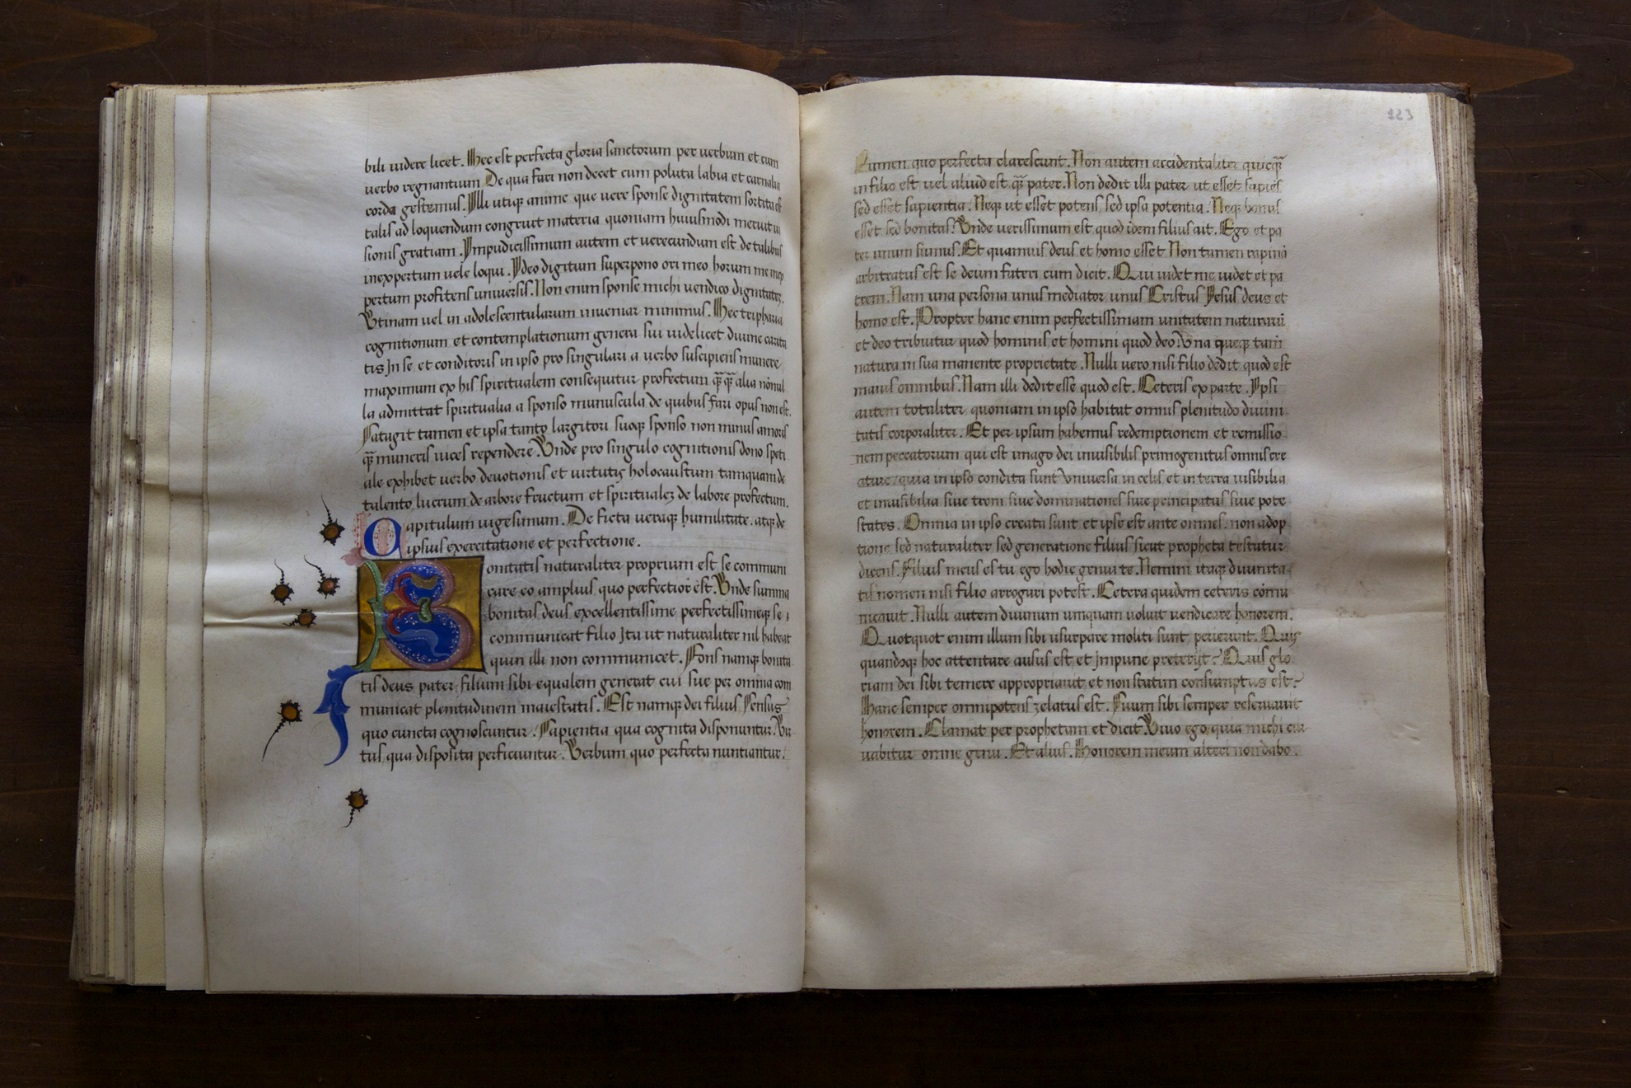 bili uidere licet. Hec est perfecta gloria sanctorum per uerbum et cum
uerbo regnantium. De qua fari non decet cum poluta labia et carnalia
corda gestemus. Illi utiqz anime que uere sponse dignitatem sortita est
talis ad loquendum congruit materia quoniam huiusmodi meruit ui
sionis gratiam. Impudicissimum autem et uerecundum est de talibus
inexpertum uele loqui. Ideo digitum superpono ori meo horum me inex
pertum profitens uniuersis. Non enim sponse michi uendico dignitatez.
Vtinam uel in adolescentularum inueniar minimus. Hec tripharia
cognitionum et contemplationum genera sui uidelicet diuine carita
tis In se et conditoris in ipso pro singulari a uerbo suscipiens munere
maximum ex his spiritualem consequitur profectum qꝫqꝫ alia nōnul
la admittat spiritualia a sponso munuscula de quibus fari opus non est.
Satagit tamen et ipsa tanto largitori suoqz sponso non minus amoris
qꝫ muneris uices rependere. Vnde pro singulo cognitionis dono speti
ale exhibet uerbo deuotionis et uirtutis holocaustum tamquam de
talento lucrum de arbore fructum et spiritualez de labore profectum.
Capitulum uigesimum. De ficta ueraqz humilitate. atqz de
ipsius exercitatione et perfectione.
Bonitatis naturaliter proprium est se communi
care eo amplius quo perfectior est. Vnde summa
bonitas deus excellentissime perfectissimeqz se
communicat filio Ita ut naturaliter nil habeat
quin illi non communicet. Fons namqz bonita
tis deus pater filium sibi equalem generat cui sue per omnia com
municat plenitudinem maiestatis. Est namqz dei filius Sensus
quo cuncta cognoscuntur. Sapientia qua cognita disponuntur. Vir
tus qua disposita perficiuntur. Verbum quo perfecta nuntiantur.
123
Lumen quo perfecta clarescunt. Non autem accidentaliter quicqꝫ
in filio est uel aliud est qꝫ pater. Non dedit illi pater ut esset sapiēs
sed esset sapientia. Neqz ut esset potens sed ipsa potentia. Neqz bonus
esset sed bonitas. Vnde uerissimum est quod idem filius ait. Ego et pa
ter unum sumus. Et quamuis deus et homo esset Non tamen rapinā
arbitratus est se deum fateri cum dicit. Qui uidet me uidet et pa
trem. Nam una persona unus mediator unus Cristus Yesus deus et
homo est. Propter hanc enim perfectissimam unitatem naturarū
et deo tribuitur quod hominis et homini quod dei. Vna queqz tamē
natura in sua manente proprietate. Nulli uero nisi filio dedit quod est
maius omnibus. Nam illi dedit esse quod est. Ceteris ex parte. Ypsi
autem totaliter quoniam in ipso habitat omnis plenitudo diuini
tatis corporaliter. Et per ipsum habemus redemptionem et remissio
nem peccatorum qui est imago dei inuisibilis primogenitus omnis cre
ature quia in ipso condita sunt Vniuersa in celis et in terra uisibilia
et inuisibilia siue troni siue dominationes siue principatus siue pote
states. Omnia in ipso creata sunt et ipse est ante omnes. non adop
tione sed naturaliter sed generatione filius sicut propheta testatur
dicens. Filius meus es tu ego hodie genui te. Nemini itaqz diuinita
tis nomen nisi filio arrogari potest. Cetera quidem ceteris comu
nicauit. Nulli autem diuinum umquam uoluit uendicare honorem.
Quotquot enim illum sibi usurpare moliti sunt perierunt. Quis
quandoqz hoc attentare ausus est et impune preterijt? Quis glo
riam dei sibi temere appropriauit et non statim consumptus est?
Hanc semper omnipotens zelatus est. Suum sibi semper reseruauit
honorem. Clamat per prophetam et dicit Viuo ego quia michi cur
uabitur omne genu. Et alius. Honorem meum alteri non dabo.